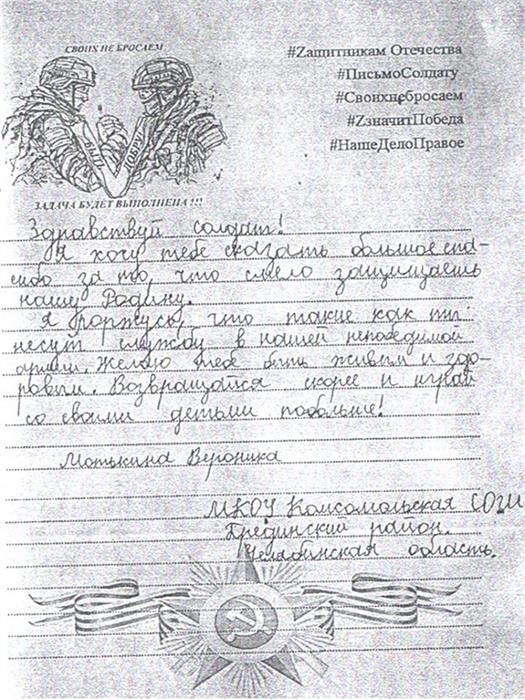 СВОИХ НЕ БРОСАЕМ
ЗАДАЧА БУДЕТ ВЫПОЛНЕНА !!!
#Zащитникам Отечества
#ПисьмоСолдату
#Своихнебросаем
#ZзначитПобеда
#НашеДелоПравое
Здравствуй солдат!
Я хочу тебе сказать большое спа-
сибо за то, что смело защищаешь
нашу Родину.
Я горжусь, что такие как ты
несут службу в нашей непобедимой
армии. Желаю тебе быть живым и здо-
ровым. Возвращайся скорее и играй
со своими детьми побольше!
Мотькина Вероника
МКОУ Комсомольская СОШ
Брединский район.
Челябинская область.